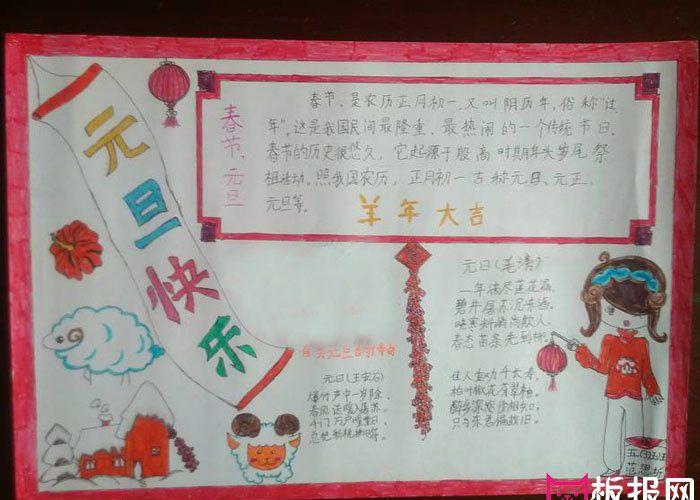 元旦快乐
春节、元旦
春节,是农历正月初一,又叫阴历年,俗称“过
年”。这是我国民间最隆重、最热闹的一个传统节日。
春节的历史很悠久,它起源于殷商时期年头岁尾祭
祖活动。照我国农历,正月初一古称元日、元正、
元旦等。
羊年大吉
元日(毛滂)
一年滴尽莲花漏
碧井屠苏沉冻酒
晓寒料峭尚欺人
春态苗条先到柳
佳人重劝千
柏叶椒花 翠袖
醉乡深处 相知
只与东君偏故旧。
元旦
元日(王安石)
爆竹声中一岁除,
春风送暖入屠苏。
千门万户曈曈日,
总把新桃换旧符。
五
范思
板报网